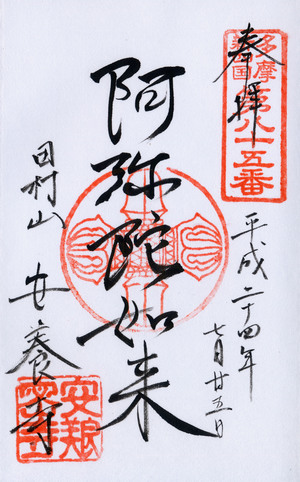 奉拝
多摩
新四国
第八十五番
平成二十四年
七月廿五日
阿弥陀如来
田村山
安養寺